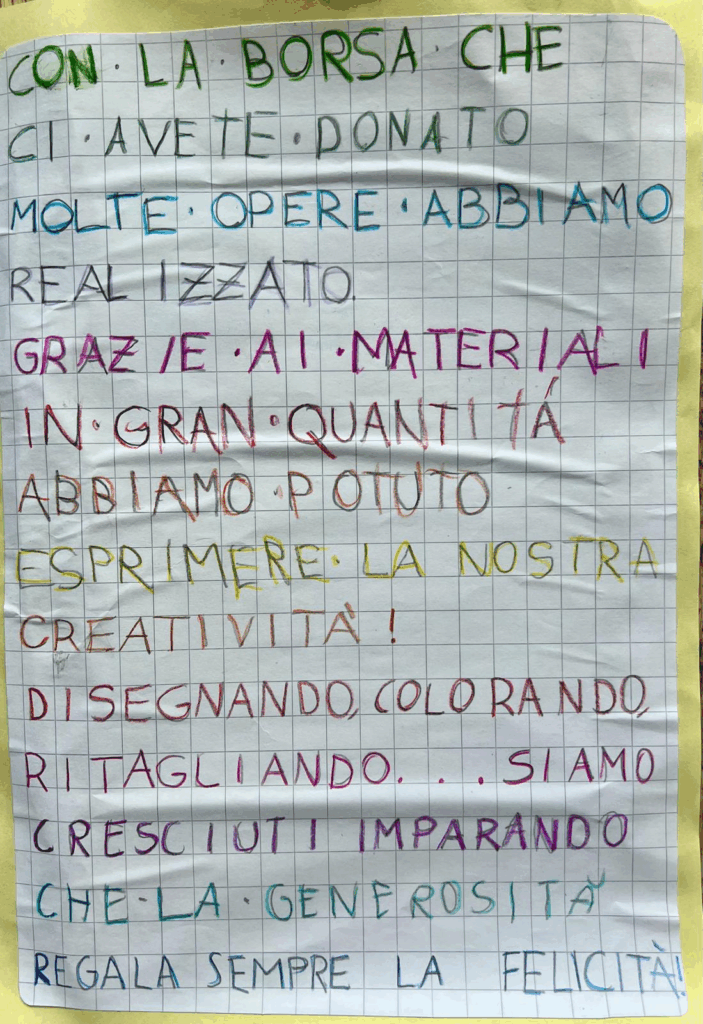 CON·LA·BORSA·CHE
CI·AVETE·DONATO
MOLTE·OPERE·ABBIAMO
REALIZZATO.
GRAZIE·AI·MATERIALI
IN·GRAN·QUANTITÁ
ABBIAMO·POTUTO
ESPRIMERE·LA NOSTRA
CREATIVITÀ!
DISEGNANDO, COLORANDO,
RITAGLIANDO. . . SIAMO
CRESCIUTI IMPARANDO
CHE·LA·GENEROSITÀ
REGALA SEMPRE LA FELICITÀ!